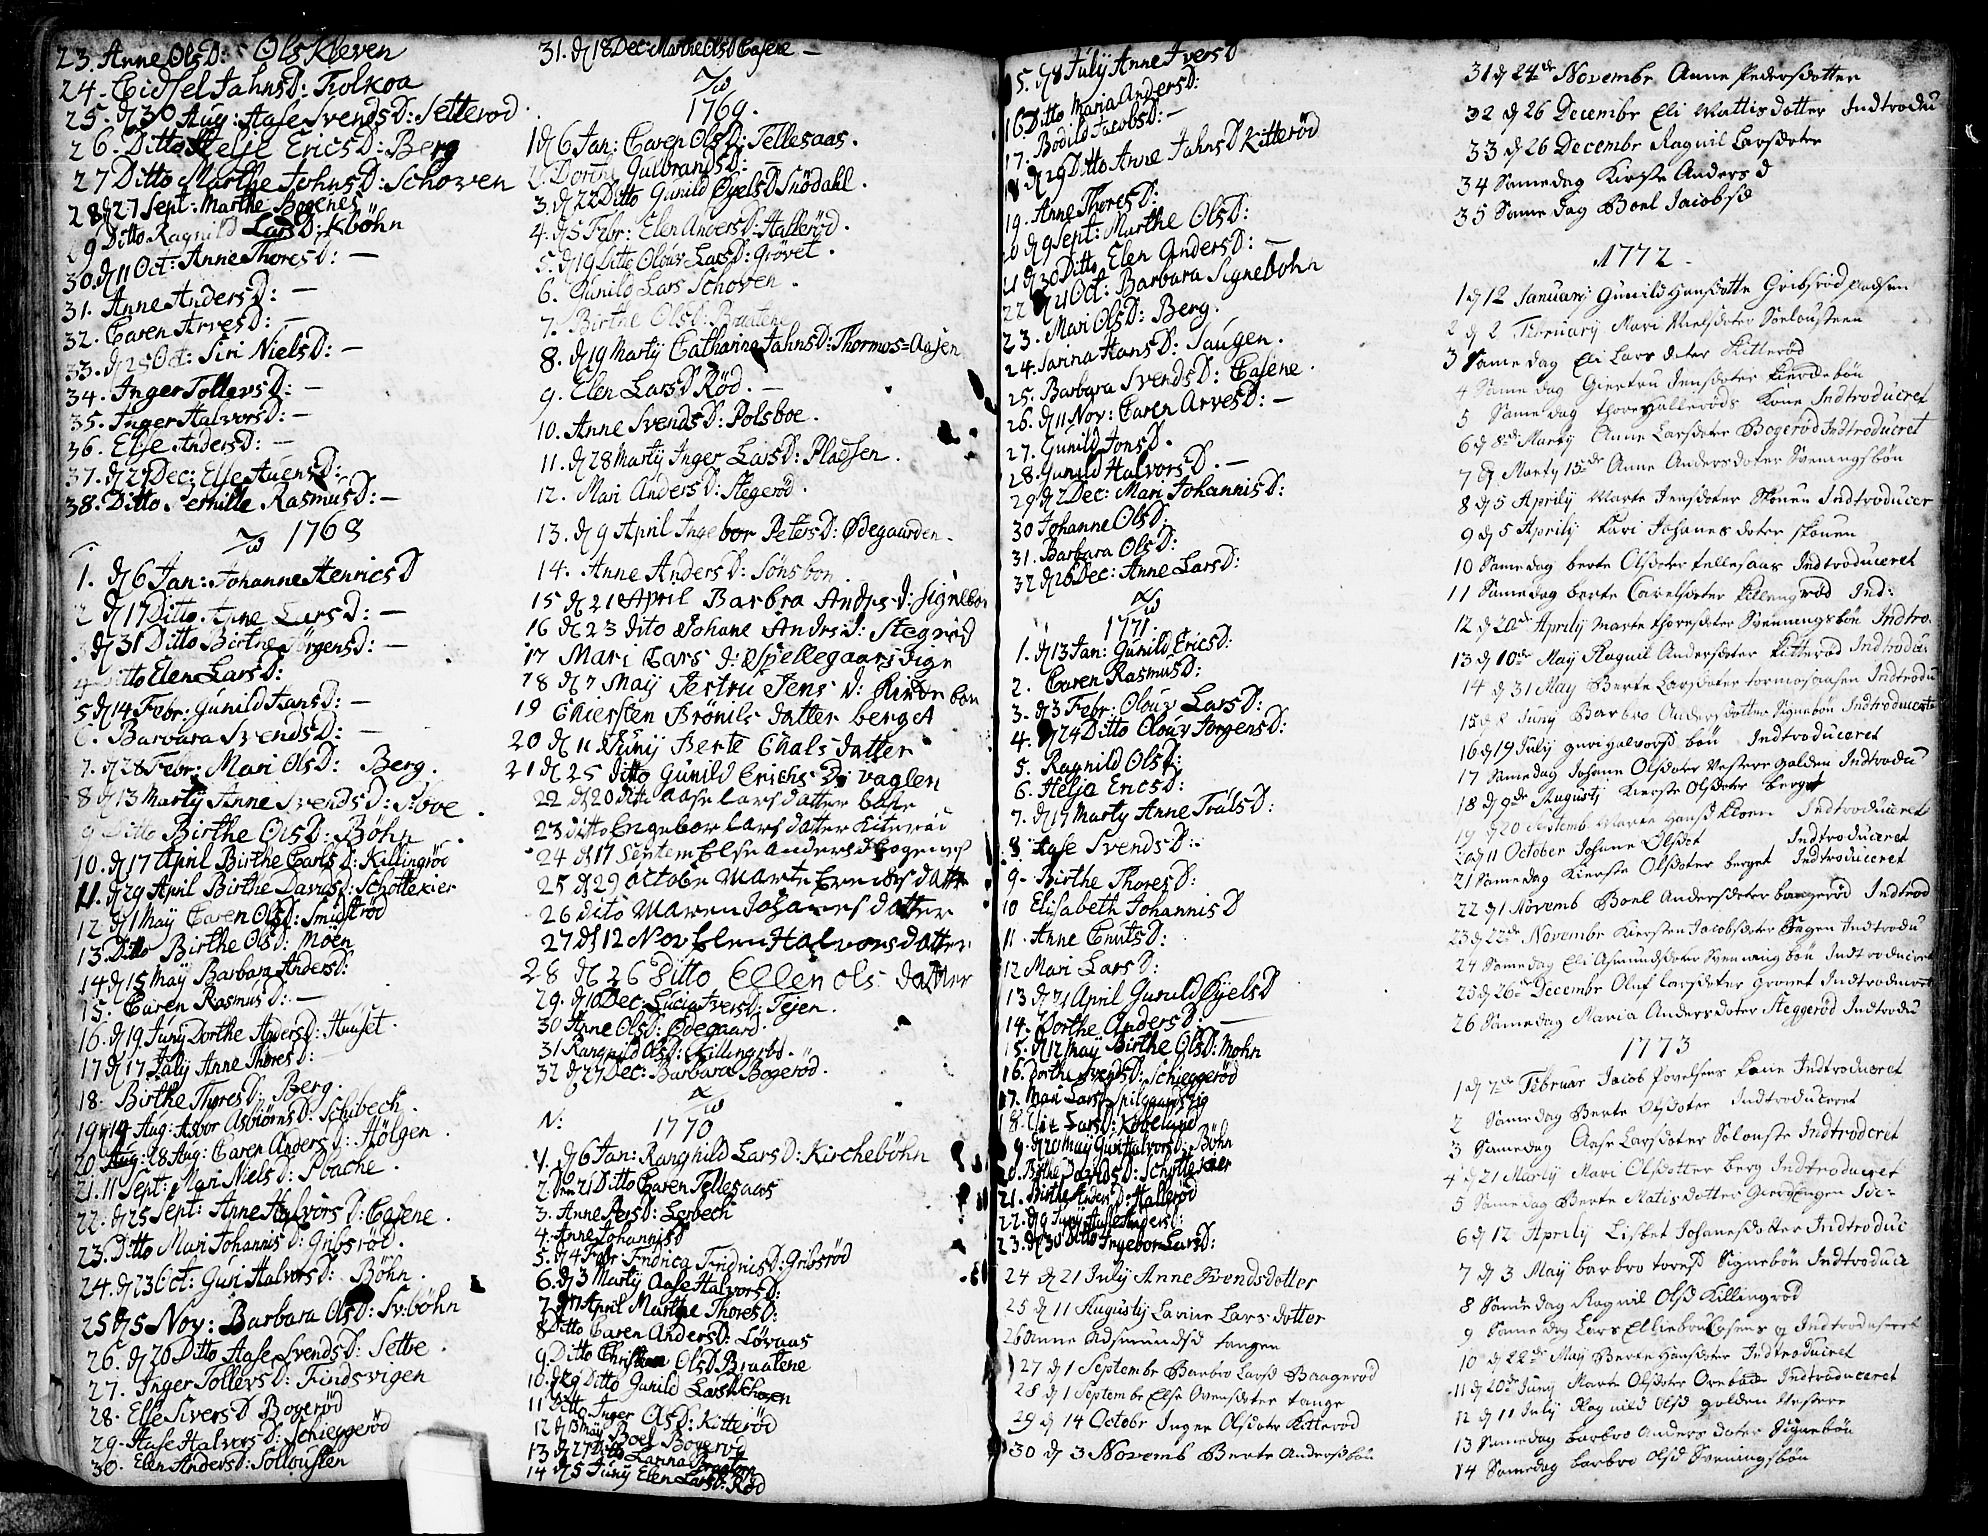 23. Anne OlsD: Ols Kleven
24. Cidsel JahnsD: Folkoa
25. d 30 Aug: Aase SvendsD: Setterød
26. Ditto Helje EricsD: Berg
27 Ditto Marthe JohnsD: Schoven
28 d 27 Sept: Marthe Bogenes
29 Ditto Ragnild LarsD: Kbøhn
30. d 11 Oct: Anne ThoresD: —
31. Anne AndersD: —
32. Caren ArvesD: —
33. d 25 Oct: Siri NielsD: —
34. Inger TollevsD: —
35. Inger HalvorsD: —
36. Else AndersD: —
37. d 27 Dec: Else AuensD:
38. Ditto Pernille RasmusD: —
1768
1. d 6 Jan: Johanne HenricsD
2 d 17 Ditto. Anne LarsD: —
3 d 31 Ditto Birthe JörgensD: —
4 Ditto Elen LarsD:
5 d 14 Febr: Gunild HansD: —
6. Barbara SvendsD: —
7. d 28 Febr: Mari OlsD: Berg.
8 d 13 Martij Anne SvendsD: S:boe.
9 Ditto Birthe OlsD: Bøhn
10. d 17 April Birthe CarlsD: Killingrød
11. d 29 April Birthe DavidsD: Schottekier
12 d 1 Maij Caren OlsD: Smidsrød
13. Ditto Birthe OlsD: Möen
14 d 15 Maij Barbara AndersD:
15. Caren RasmusD: —
16. d 19 Junij Dorthe AndersD: Huuset.
17 d 17 July Anne ThoresD: —
18. Birthe ThoresD: Berg.
19 d 14 Aug: Asbor AsbiörnsD: Schibech.
20. Aug: 28 Aug: Caren AndersD: Hölgen.
21. 11 Sept: Mari NielsD: Pbache.
22. d 25 Sept: Anne HalvorsD: Casene.
23. Ditto Mari JohannisD: Gribsrød.
24. d 23 Oct: Guri HalvorsD: Bøhn.
25 d 5 Nov: Barbara OlsD: Sv:bøhn
26. d 26 Ditto Aase SvendsD: Sette.
27. Inger TollevsD: Findsvigen
28. Else SiversD Bogerød
29. Aase HalvorsD: Schieggerød
30. Elen AndersD: Sollousten
31. d 18 Dec: Marthe OlsD Casene —
1769.
1 d 6 Jan: Caren OlsD: Tellesaas.
2. Dorthe GulbrandsD: —
3. d 22 Ditto Gunild ØyelsD Snödahl.
4. d 5 Febr: Elen AndersD: Hallerød.
5. d 19 Ditto Olöuv LarsD: Grövet.
6. Gunild Lars Schoven.
7. Birthe OlsD: Braatene
8. d 19 Martij Catharina JahnsD: Thormos=Aasen
9. Elen LarsD Rød. —
10. Anne SvendsD: Polsboe.
11. d 28 Martij Inger LarsD: Pladsen.
12. Mari AndersD: Stegerød.
13. d 9 April Ingebor PetersD: Ødegaarden.
14. Anne AndersD: Sönsbon.
15 d 21 April Barbra Andrs d: Signebon
16 d 23 dito Johane Andrs d: Stegrød
17 Mari Lars d: Spellegaarsdige
18 d 7 Maij Jertru Jens d: Kirkebon
19 Chiersten Brönils datter berget
20 d 11 Junij Berte Chals datter
21 d 25 ditto Gunild Erichs D: vaglen
22 d 20 ditto aase lars datter Case
23 ditto Engebor lars datter Kiterød
24 d 17 Septem Else anders d Bogenes
25 d 29 octobe Marte Evenss datter
26 dito Maren Johanes datter
27 d 12 Nov Elen Halvors datter
28 d 26 Ditto Ellen ols datter
29. d 10 Dec: Lucia IversD: Tejen.
30 Anne OlsD: Ødegaard.
31 Rangnild OlsD: Killingrød.
32 d 27 Dec: Barbara Bogerød.
N: 1770
1. d 6 Jan: Ranghild LarsD: Kirchebøhn
2. Den 21 Ditto Caren Tellesaas
3. Anne PersD: Lerbech
4. Anne JohannisD
5. d 4 Febr: Fridrica FridricsD: Gribsrød
6. d 3 Martij Aase HalvorsD:
7. d 17 April Marthe ThoresD:
8 Ditto Caren AndersD: Lövaas
9 Ditto Christen OlsD Braatene
10. d 29 Ditto Gunild LarsD Schoven
11 Ditto Inger OlsD: Kitterød
12 d 13 Maij Boel Bogerød
13 d 27 Ditto Larina Braaten
14 d 5 Junij Elen LarsD: Rød
15. d 8 Julij Anne IversD
16. Ditto Maria AndersD:
17. Bodild JacobsD: —
18 d 29 Ditto Anne JahnsD Kitterød
19. Anne ThoresD:
20 d 9 Sept: Marthe OlsD:
21 d 30 Ditto Elen AndersD: —
22 d 21 Oct: Barbara Signebohn
23. Mari OlsD: Berg.
24. Sarina HansD: Saugen.
25. Barbara SvendsD: Casene.
26. d 11 Nov: Caren ArvesD: —
27. Gunild JonsD.
28. Gunild HalvorsD. —
29 d 2 Dec: Mari JohannisD:
30 Johanne OlsD.
31. Barbara OlsD:
32 d 26 Dec: Anne LarsD:
1771.
1. d 13 Jan: Gunild EricsD:
2. Caren RasmusD:
3. d 3 Febr: Olöuv LarsD:
4. d 24 Ditto Olöuv JörgensD:
5. Ragnild OlsD:
6. Helje EricsD:
7. d 17 Marty Anne TrulsD:
8 Aase SvendsD:
9. Birthe ThoresD:
10 Elisabeth JohannisD
11. Anne CnutsD:
12 Mari LarsD:
13 d 21 April Gunild ØyelsD
14. Dorthe AndersD: —
15. d 12 Maij Birthe OlsD: Mohn
16. Dorthe SvendsD: Schieggerød
17. Mari LarsD: Spilgaardsdig
18. Elie LarsD: Kobeland
19. d 20 Maij Guri HalvorsD: Bøhn
20. Birthe DavidsD: Schottekier
21. Birthe AndersD: Hallerød
22. d 9 Junij Aasle AndersD:
23. d 30 Ditto Ingebor LarsD:
24 d 21 July Anne Svendsdotter
25 d 11 Augustij Lavine Lars dotter
26 Anne Asmundsd tangen
27 d 1 Septembr Barbro Larsd Baagerød
28 d 1 Septembr Else Ovensdoter tange
29 d 14 Octobr Inger Olsdoter Kitterød
30 d 3 Novemb Berte Andersdbøn
31 d 24de Novembr Anne Pedersdotter
32 d 26 Decembr Eli Mattisdotter Indtrodu
33 d 26 Decembr Ragnil Larsdoter
34 Samedag Kierste Andersd
35 Samedag Boel Jacobsd
1772.
1 d 12 January Gunild Hansdotte Gribsrød pladsen
2 d 2 February Mari Nielsdoter Solousteen
3 Samedag Eli Lars doter Kitterød
4 Samedag Giertru Jensdoter Kierckebøn
5 Samedag thore Hallerøds Kone Indtroducret
6 d 8de Martij Anne Larsdoter Bogerød Indtroducret
7 d Martij 15de Anne Andersdoter Sveningsbøn
8 d 5 Aprily Marte Jensdoter Skouen Indtroducer
9 d 5 Aprily Kari Johanesdoter Skouen
10 Samedag berte Olsdoter tellesaas Indtroduceret
11 Samedag berte Carelsdoter Killengrød Ind:
12 d 20de Aprily Marte thoresdoter Svenningsbøn Indtro.
13 d 10de Maij Ragnil Andersdoter Kitterød Indtrodu:
14 d 31 Maij Berte Larsdoter tormosaasen Indtrodu
15 d 8 Junij Barbro Andersdotter Signebøn Indtroducerte
16 d 19 July guri halvorsd bøn Indtroduceret
17 Samedag Johane Olsdoter Vestere golden Indtrodu
18 d 9de Augustij Kierste Olsdoter berget
19 d 20 Septemb Marte Hansd Kloven Indtroduceret
20 d 11 October Johane Olsdot Indtroduceret
21 Samedag Kierste Olsdoter berget Indtroduceret
22 d 1 Novemb Boel Andersdoter baagerød Indtrod
23 d 22de Novembr Kiersten Jacobsdoter Sagen Indtrodu
24 Samedag Eli Asmundsdoter Svenning bøn Indtroduceret
25 d 26de Decembr Oluf larsdoter grovet Indtroduceret
26 Samedag Maria Andersdoter Steggerød Indtrodu
1773
1 d 7de Februar Jacob Povelsens Kone Indtroduceret
2 Samedag Berte Olsdoter Indtroduceret
3 Samedag Aase Larsdoter Solouste Indtroducret
4 d 21 Martij Mari Olsdotter berg Indtroduceret
5 Samedag Berte Matisdotter Gierdsengen Ide:
6 d 12 Aprily Lisbet Johanesdotter Indtroduc
7 d 3 Maij barbro toresd Signebøn Indtroduce
8 Samedag Ragnil Olsd Killingrød
9 Samedag Lars Indtroduceret
10 d 22de Maij Berte Hansdoter Indtroduceret
11 d 20de Junij Marte Olsdoter Indtroduceret
12 d 11 July Ragnild Olsd golden Vestere
13 Samedag barbro Anders doter Signebøn
14 Samedag barbro Olsd Sveningsbøn